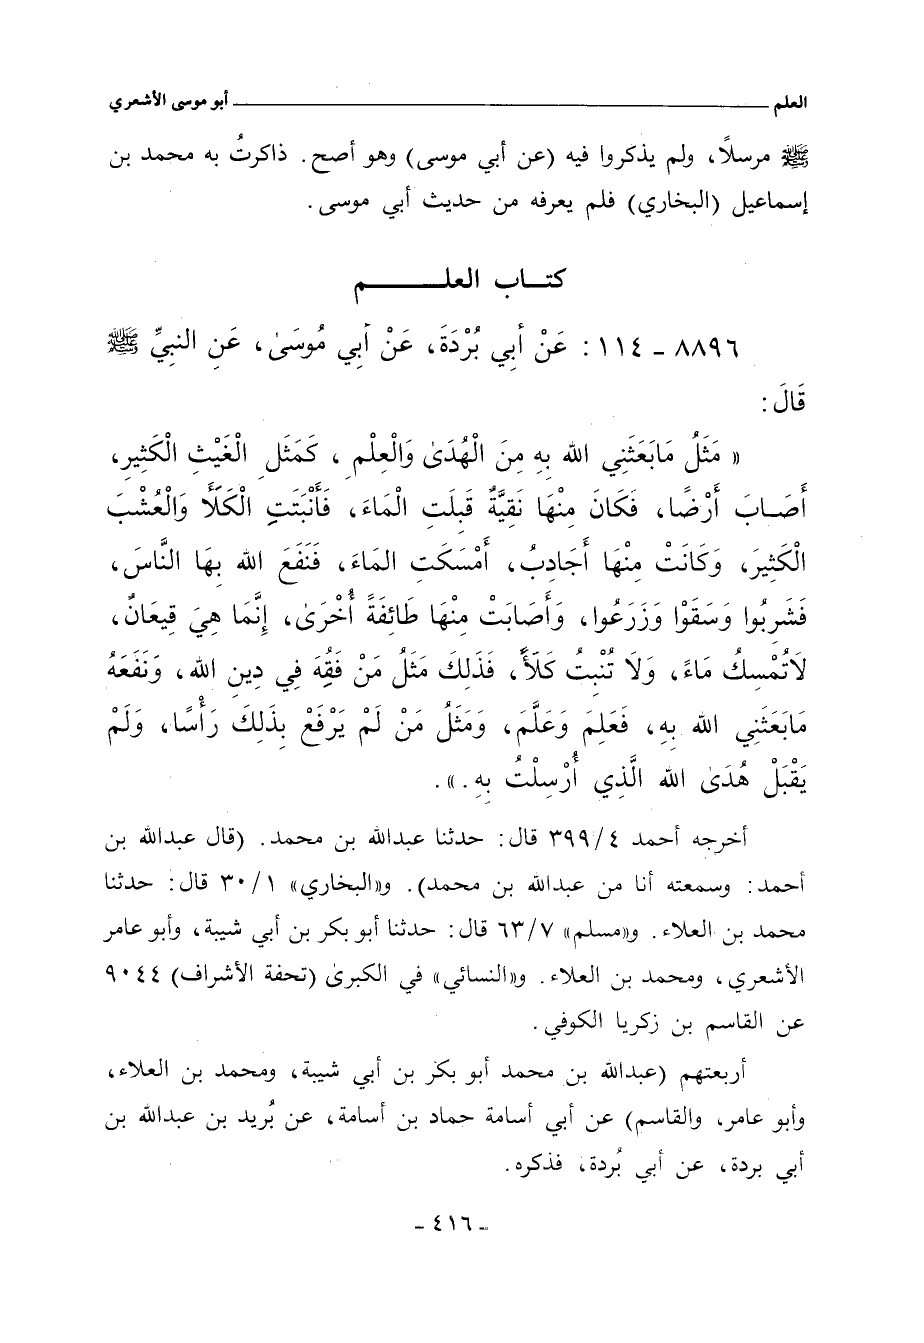 العلم ـــــــــــــــــــــــــــــــــــــــــ أبو موسى الأشعري
ﷺ مرسلاً، ولم يذكروا فيه (عن أبي موسى) وهو أصح. ذاكرتُ به محمد بن
إسماعيل (البخاري) فلم يعرفه من حديث أبي موسى.
كتـــاب العلـــــــم
٨٨٩٦ - ١١٤: عَنْ أَبِي بُرْدَةَ، عَنْ أَبِي مُوسَىٰ، عَنِ النبيِّ ﷺ
قَالَ:
« مَثَلُ مَابَعَثَنِي الله بِهِ مِنَ الْهُدَىٰ وَالْعِلْمِ، كَمَثَلِ الْغَيْثِ الْكَثِيرِ،
أَصَـابَ أَرْضًـا، فَكَانَ مِنْهَا نَقِيَّةٌ قَبِلَتِ الْمَاءَ، فَأَنْبَتَتِ الْكَلَأَ وَالْعُشْبَ
الْكَثِيرَ، وَكَانَتْ مِنْهَا أَجَادِبُ، أَمْسَكَتِ المَاءَ، فَنَفَعَ الله بِهَا النَّاسَ،
فَشَرِبُوا وَسَقَوْا وَزَرَعُوا، وَأَصَابَتْ مِنْهَا طَائِفَةً أُخْرَىٰ، إِنَّمَا هِيَ قِيعَانٌ،
لَاتُمْسِكُ مَاءً، وَلَا تُنْبِتُ كَلَأً، فَذَلِكَ مَثَلُ مَنْ فَقُهَ فِي دِينِ الله، وَنَفَعَهُ
مَابَعَثَنِي الله بِهِ، فَعَلِمَ وَعَلَّمَ، وَمَثَلُ مَنْ لَمْ يَرْفَعْ بِذَلِكَ رَأْسًا، وَلَمْ
يَقْبَلْ هُدَىٰ الله الَّذِي أُرْسِلْتُ بِهِ.».
أخرجه أحمد ٣٩٩/٤ قال: حدثنا عبدالله بن محمد. (قال عبدالله بن
أحمد: وسمعته أنا من عبدالله بن محمد). و«البخاري» ٣٠/١ قال: حدثنا
محمد بن العلاء. و«مسلم» ٦٣/٧ قال: حدثنا أبو بكر بن أبي شيبة، وأبو عامر
الأشعري، ومحمد بن العلاء. و«النسائي» في الكبرىٰ (تحفة الأشراف) ٩٠٤٤
عن القاسم بن زكريا الكوفي.
أربعتهم (عبدالله بن محمد أبو بكر بن أبي شيبة، ومحمد بن العلاء،
وأبو عامر، والقاسم) عن أبي أسامة حماد بن أسامة، عن بُريد بن عبدالله بن
أبي بردة، عن أبي بُردة، فذكره.
- ٤١٦ -